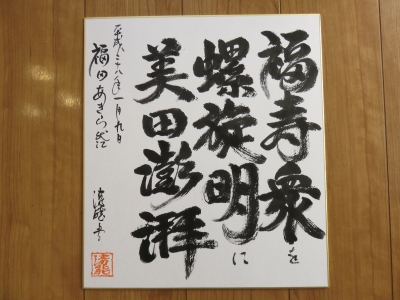 福寿衆を
螺旋明に
美田澎湃
平成二十八年一月九日
福田あきら